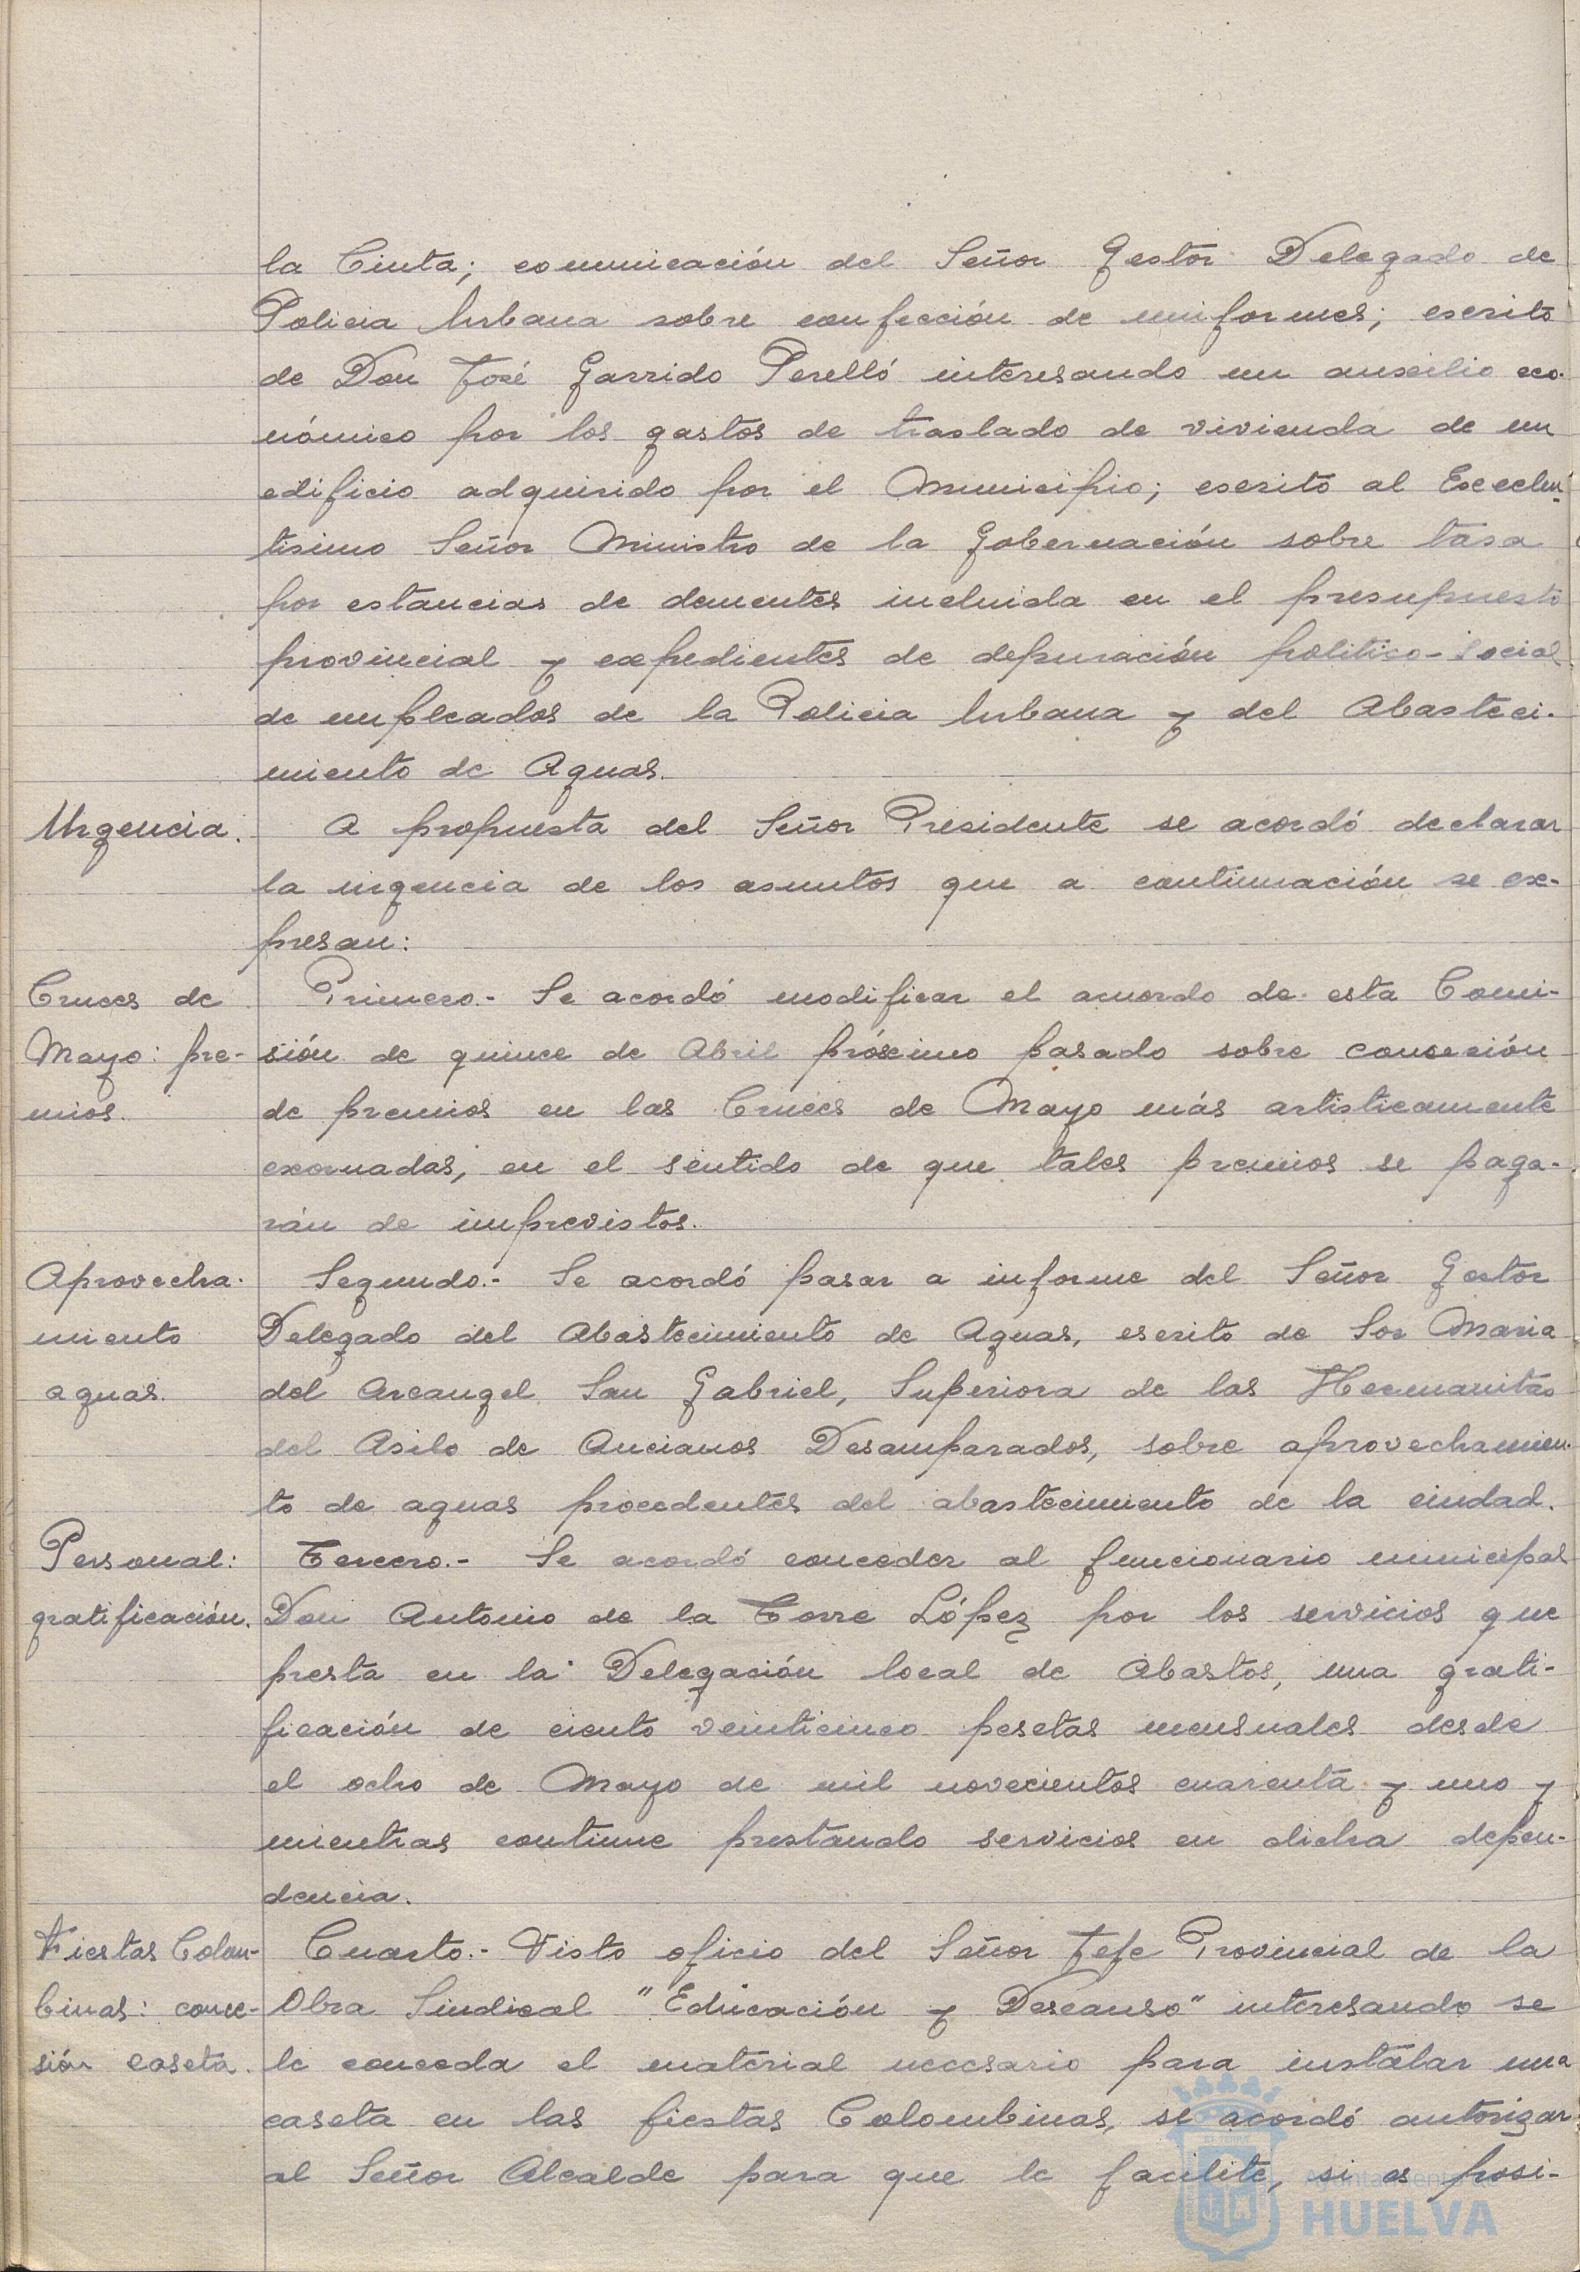 la Cinta; comunicación del Señor Gestor Delegado de
Policia Urbana sobre confección de uniformes; escrito
de Don José Garrido Perelló interesando un auxilio eco-
nómico por los gastos de traslado de vivienda de un
edificio adquirido por el Municipio; escrito al Excelen-
tisimo Señor Ministro de la Gobernación sobre tasa
por estancias de dementes incluida en el presupuesto
provincial y expedientes de depuración politico-social
de empleados de la Policia Urbana y del Abasteci-
miento de Aguas.
Urgencia. A propuesta del Señor Presidente se acordó declarar
la urgencia de los asuntos que a continuación se ex-
presan:
Cruces de Primero.- Se acordó modificar el acuerdo de esta Comi-
Mayo: pre- sión de quince de Abril próximo pasado sobre conseción
mios. de premios en las Cruces de Mayo más artisticamente
exornadas, en el sentido de que tales premios se paga-
rán de imprevistos.
Aprovecha- Segundo.- Se acordó pasar a informe del Señor Gestor
miento Delegado del Abastecimiento de Aguas, escrito de Sor Maria
aguas. del Arcangel San Gabriel, Superiora de las Hermanitas
del Asilo de Ancianos Desamparados, sobre aprovechamien-
to de aguas procedentes del abastecimiento de la ciudad.
Personal: Tercero.- Se acordó conceder al funcionario municipal
gratificación. Don Antonio de la Torre López por los servicios que
presta en la Delegación local de Abastos, una grati-
ficación de ciento veinticinco pesetas mensuales desde
el ocho de Mayo de mil novecientos cuarenta y uno y
mientras continue prestando servicios en dicha depen-
dencia.
Fiestas Colom- Cuarto.- Visto oficio del Señor Jefe Provincial de la
binas: conce- Obra Sindical "Educación y Descanso" interesando se
sión caseta. le conceda el material necesario para instalar una
caseta en las fiestas Colombinas, se acordó autorizar
al Señor Alcalde para que le facilite, si es posi-
Ayuntamiento de
HUELVA